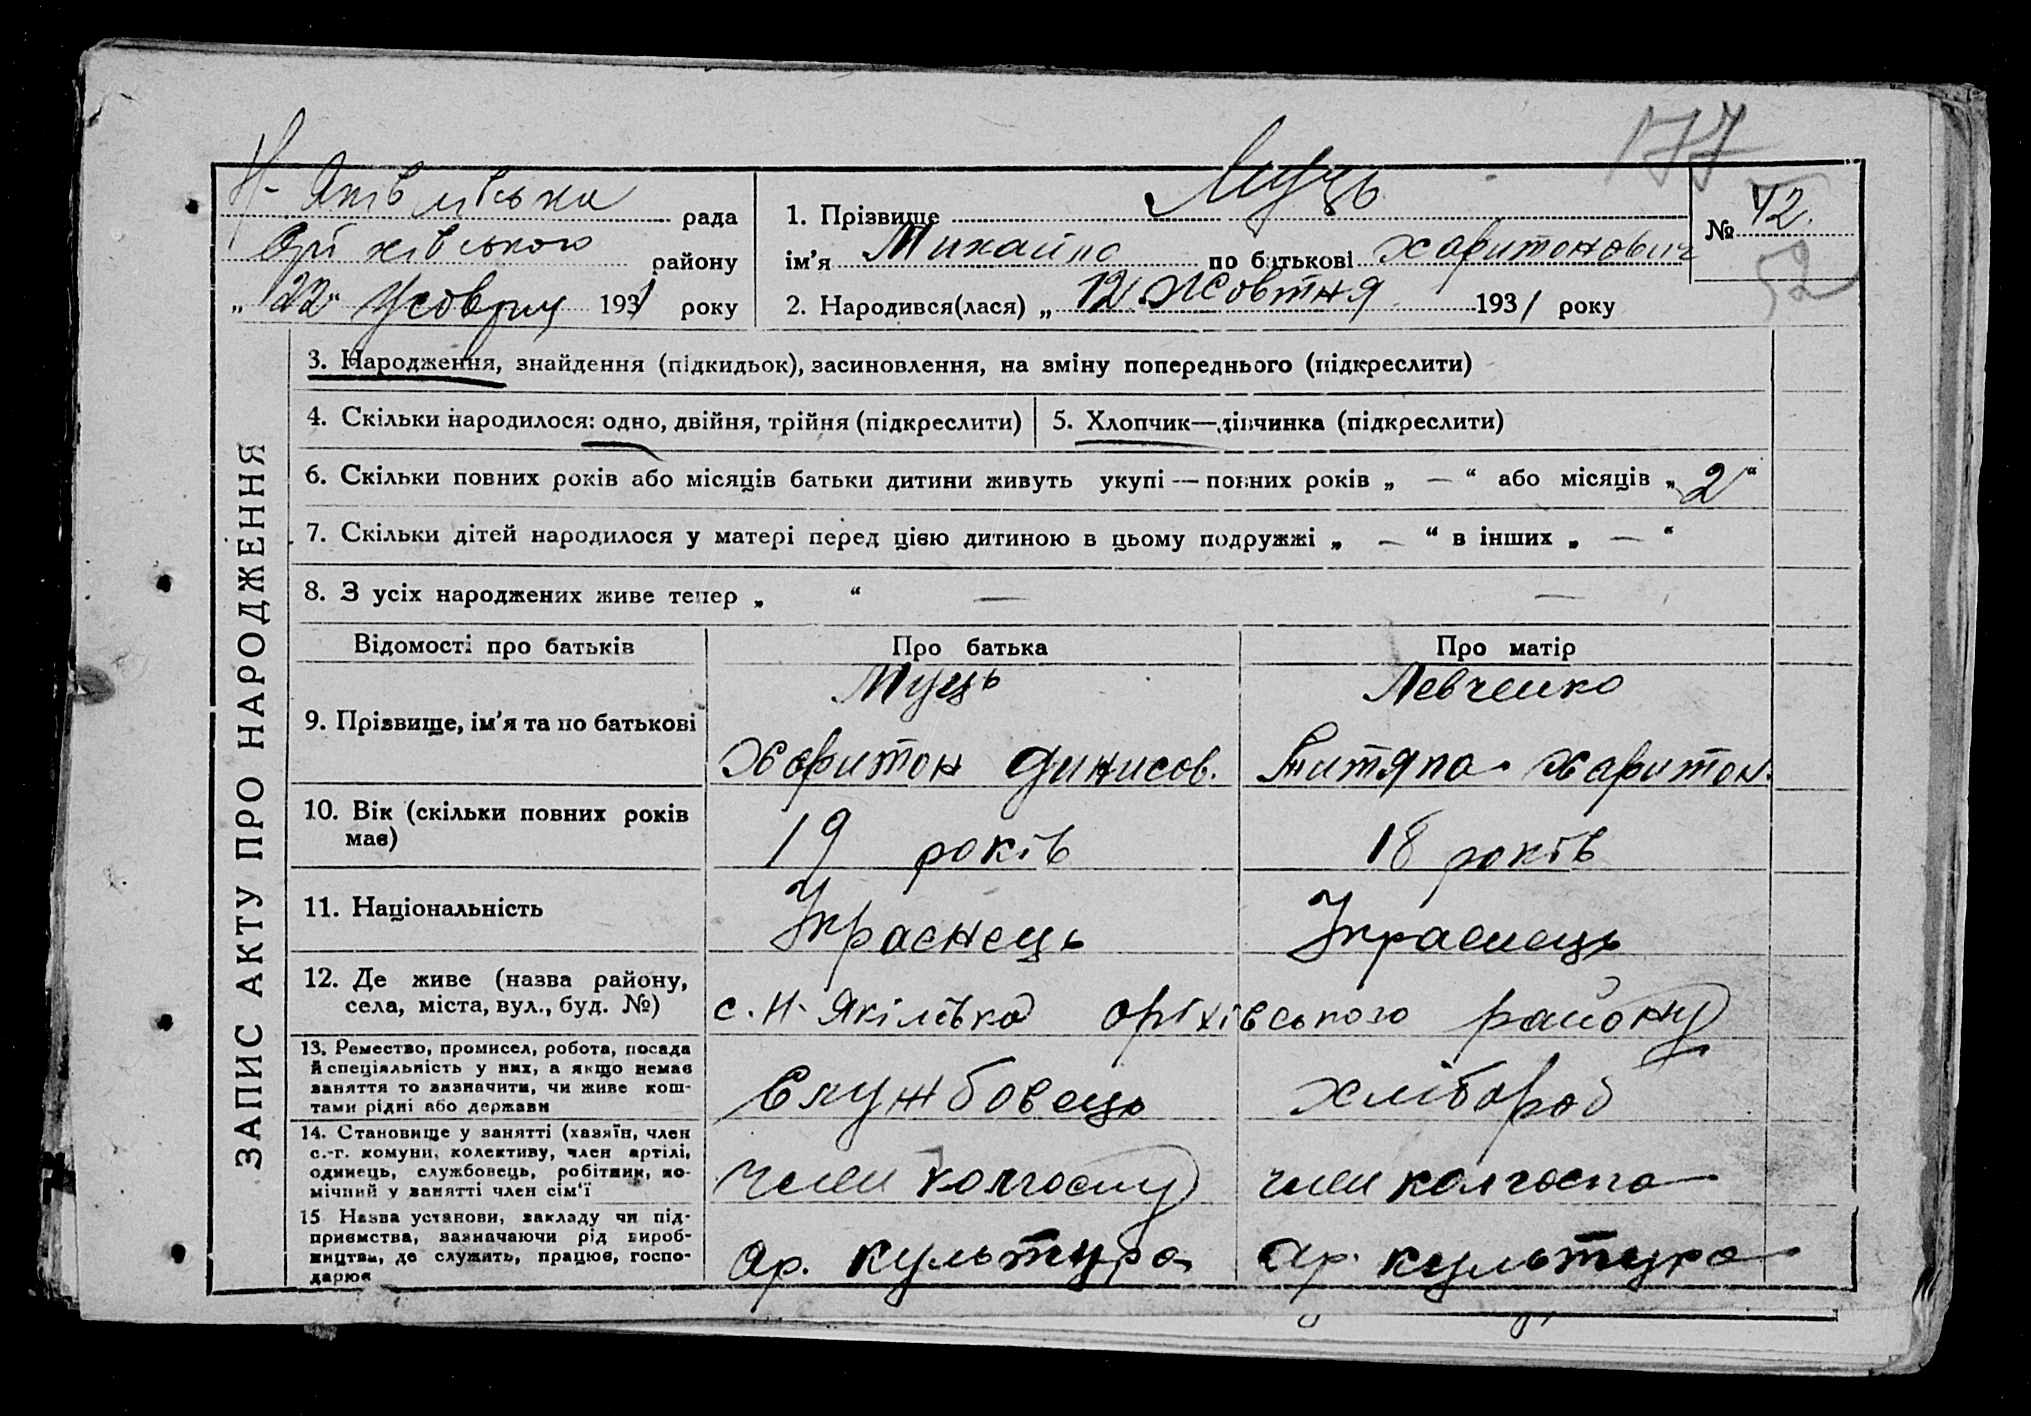 177
Н-Яківлівська рада
Оріхівського району
„ 22 " Жовтня 1931 року
1. Прізвище Муць
ім'я Михайло по батькові Харитонович
2. Народився(лася) „ 12 Жовтня 1931 року
№ 42.
52
ЗАПИС АКТУ ПРО НАРОДЖЕННЯ
3. Народження, знайдення (підкидьок), засиновлення, на зміну попереднього (підкреслити)
4. Скільки народилося: одно, двійня, трійня (підкреслити) 5. Хлопчик—дівчинка (підкреслити)
6. Скільки повних років або місяців батьки дитини живуть укупі — повних років „ — " або місяців „ 2 "
7. Скільки дітей народилося у матері перед цією дитиною в цьому подружжі „ — " в інших „ — "
8. З усіх народжених живе тепер „ " — —
Відомості про батьків Про батька Про матір
9. Прізвище, ім'я та по батькові
Муць
Харитон Динисов.
Левченко
Харитон.
10. Вік (скільки повних років має)
19 років
18 років
11. Національність
Украєнець
Украєнець
12. Де живе (назва району, села, міста, вул., буд. №)
с. Н-Якілівка Оріхівського району
13. Ремество, промисел, робота, посада й спеціяльність у них, а якщо немає заняття то зазначити, чи живе коштами рідні або держави
Службовець
Хлібороб
14. Становище у занятті (хазяїн, член с.-г. комуни, колективу, член артілі, одинець, службовець, робітник, помічний у занятті член сім'ї
член колгоспу
член колгоспа
15 Назва установи, закладу чи підприємства, зазначаючи рід виробництва, де служить, працює, господарює
ар. культура
ар. культура